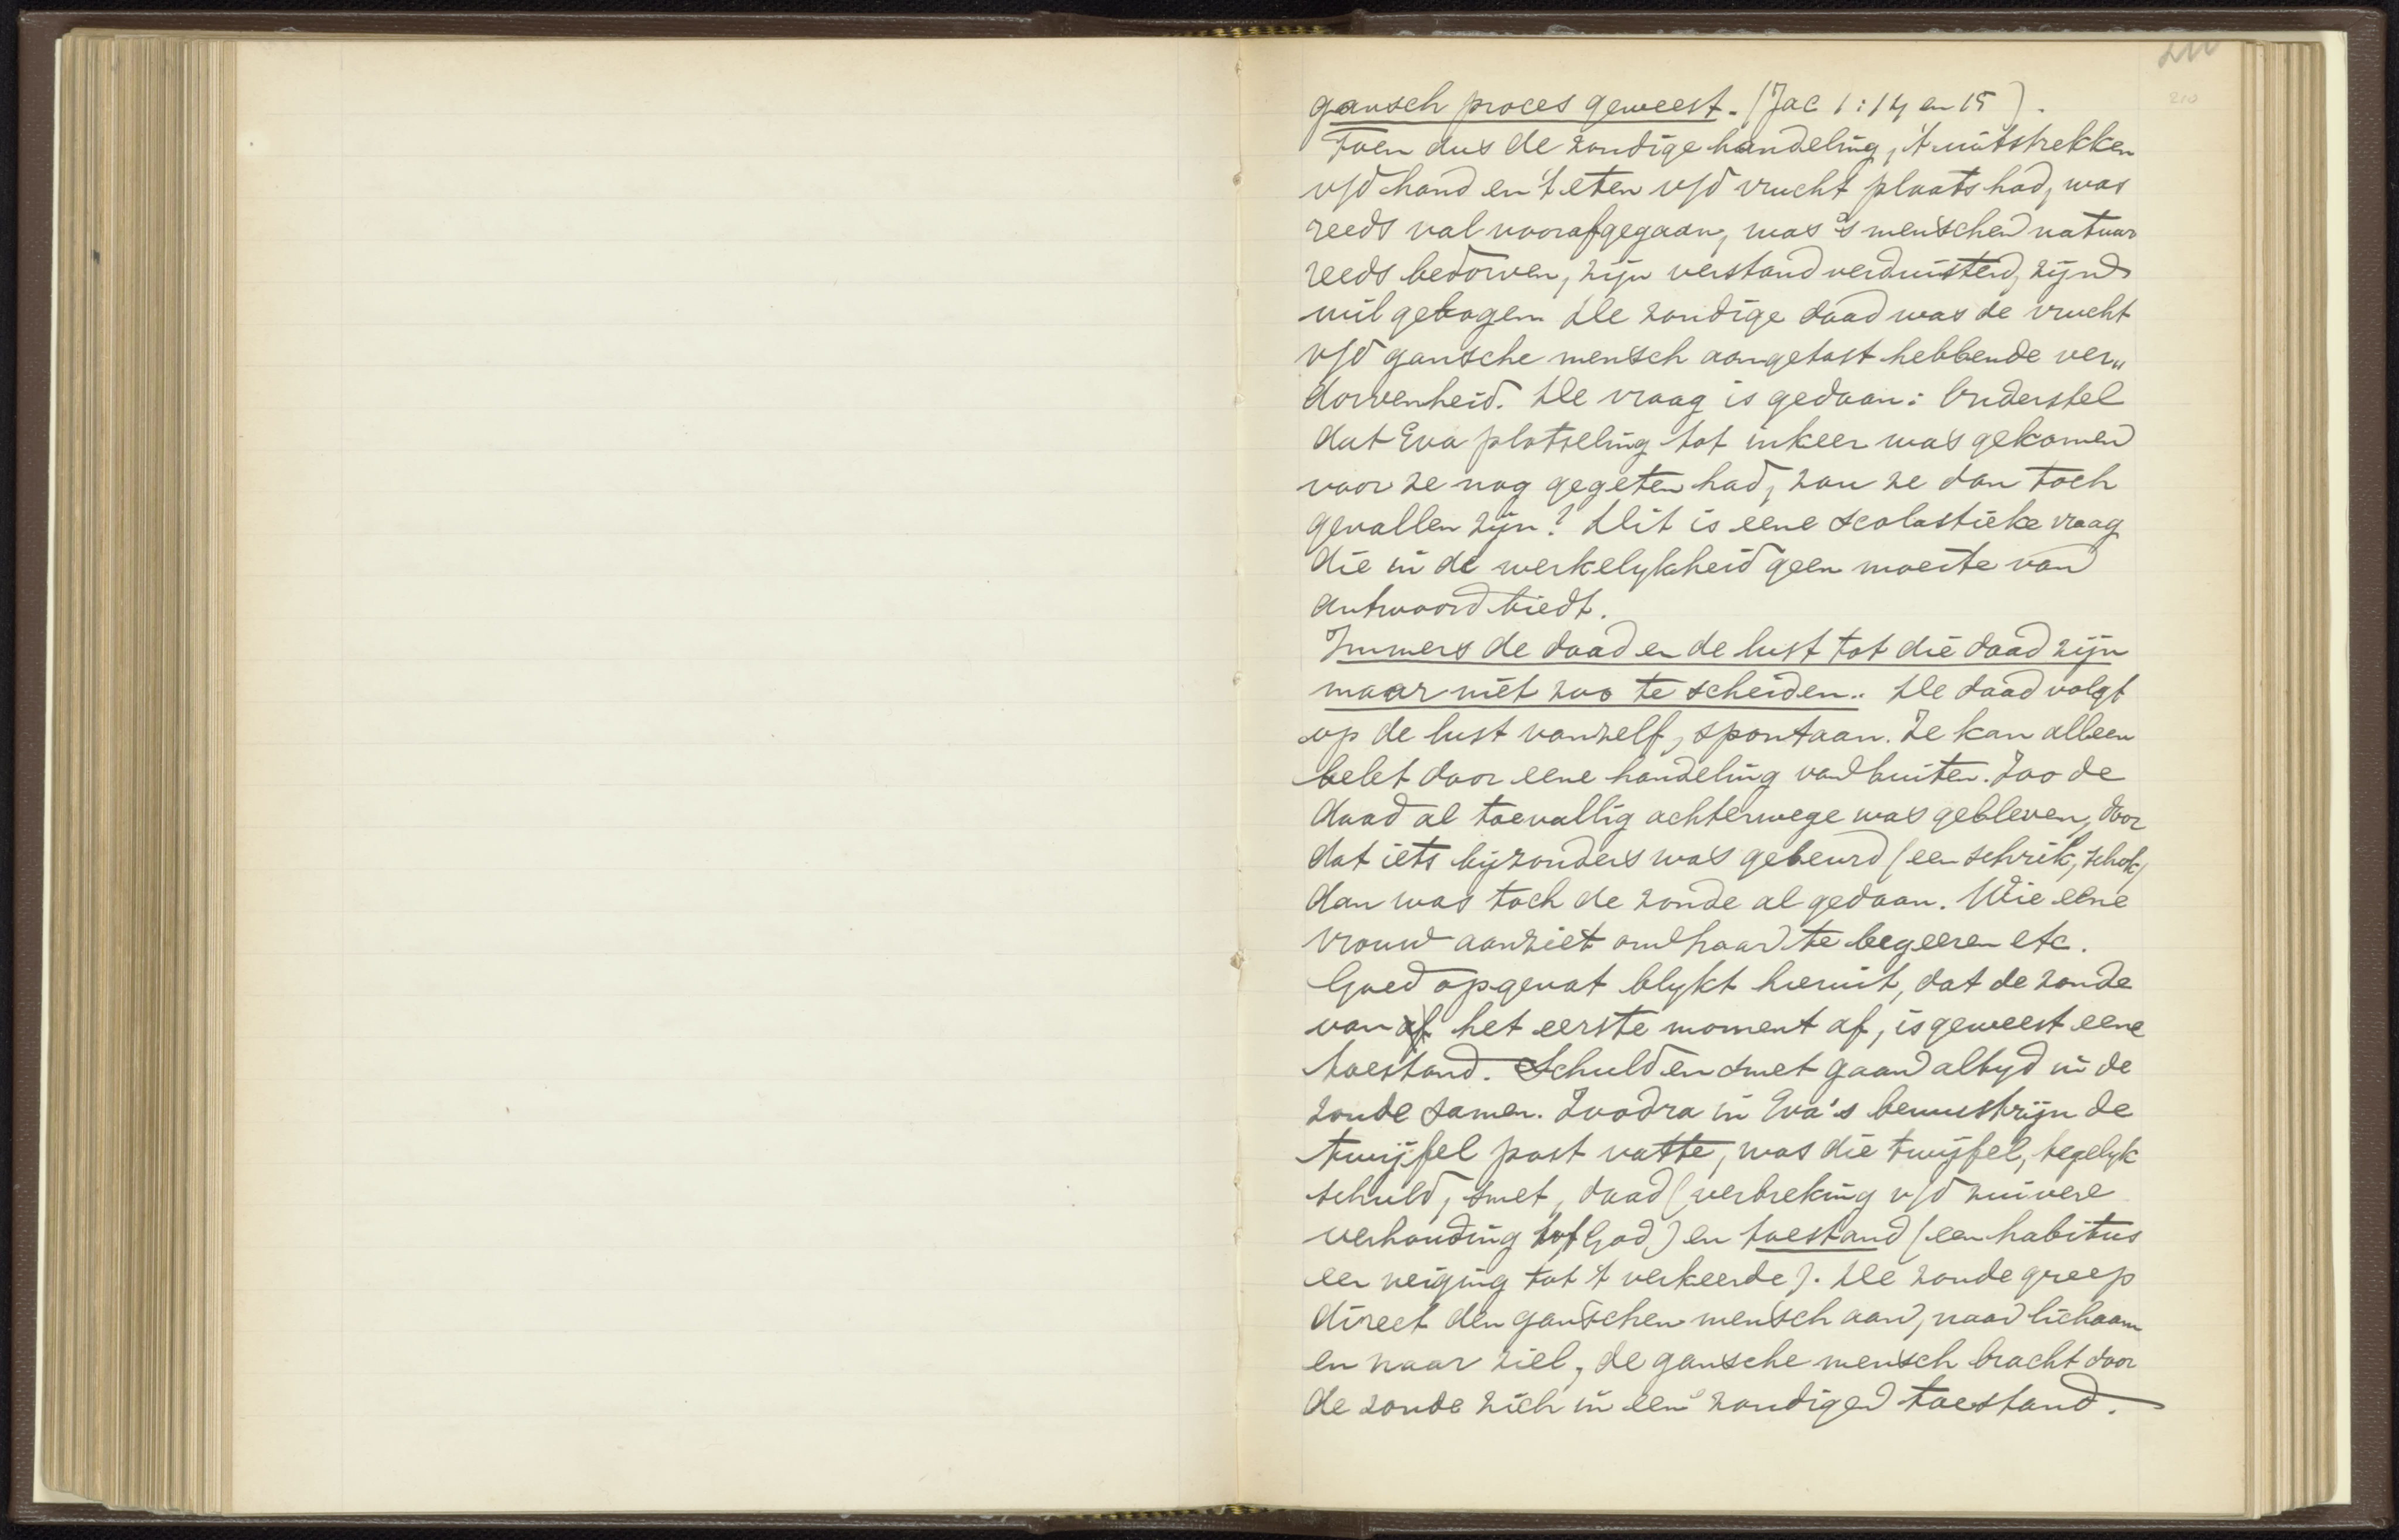 210
210
gansch proces geweest. (Jac 1:14 en 15).
Toen dus de zondige handeling, 't uitstrekken
v/d hand en 't eten v/d vrucht plaats had, was
reeds val voorafgegaan, was 's menschen natuur
reeds bedorven, zijn verstand verduisterd, zijn
wil gebogen. De zondige daad was de vrucht
v/d gansche mensch aangetast hebbende ver„
dorvenheid. De vraag is gedaan: Onderstel
dat Eva plotseling tot inkeer was gekomen
voor ze nog gegeten had, zou ze dan toch
gevallen zijn? Dit is eene scolastieke vraag
die in de werkelykheid geen moeite van
antwoord biedt.
Immers de daad en de lust tot die daad zijn
maar niet zoo te scheiden.. De daad volgt
op de lust vanzelf, spontaan. Ze kan alleen
belet door eene handeling van buiten. Zoo de
daad al toevallig achterwege was gebleven, door
dat iets bijzonders was gebeurd (een schrik, schok)
dan was toch de zonde al gedaan. Wie eene
vrouw aanziet om haar te begeeren etc.
Goed opgevat blykt hieruit, dat de zonde
van af het eerste moment af, is geweest eene
toestand. Schuld en smet gaan altyd in de
zonde samen. Zoodra in Eva's bewustzijn de
twijfel post vatte, was die twijfel, tegelyk
schuld, smet, daad (verbreking v/d zuivere
verhouding tot God) en toestand (een habitus
een neiging tot 't verkeerde). De zonde greep
direct den ganschen mensch aan, naar lichaam
en naar ziel, de gansche mensch bracht door
de zonde zich in een zondigen toestand.